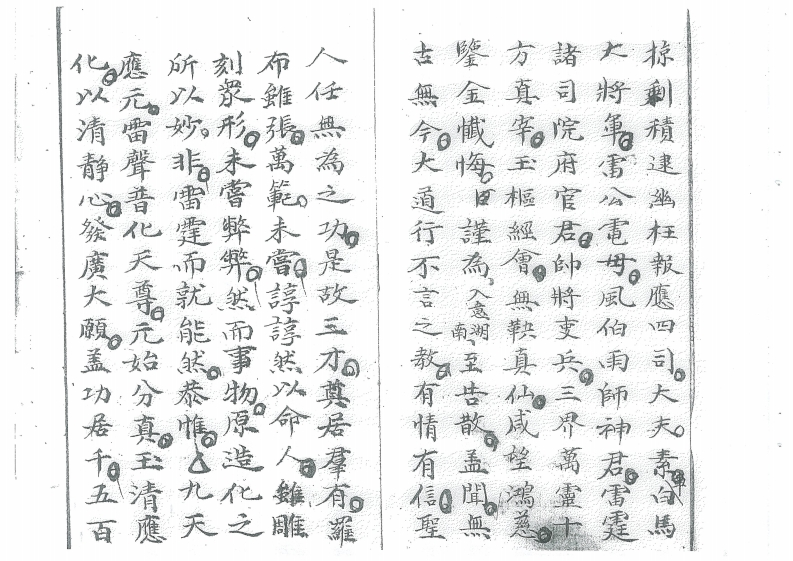 掠剩積逮幽枉報應四司大夫素白馬
大將軍雷公電母風伯雨師神君雷霆
諸司院府官君帥將吏兵三界萬靈十
方真宰玉樞經會無鞅真仙咸望鴻慈
鑒全懺悔謹為入意湖南至告散盖聞無
古無今大道行不言之教有情有信聖
人任無為之功是故三才奠居羣有羅
布雖張萬範未嘗諄諄然以命人雖雕
刻衆形未嘗弊弊然而事物原造化之
所以妙非雷霆而就能然恭惟九天
應元雷聲普化天尊元始分真玉清應
化以清静心發廣大願盖功居千五百